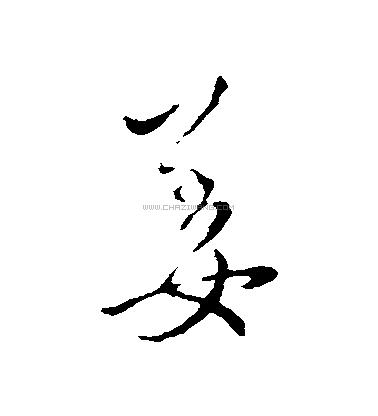 姜
WWW.CHAZIWANG.COM